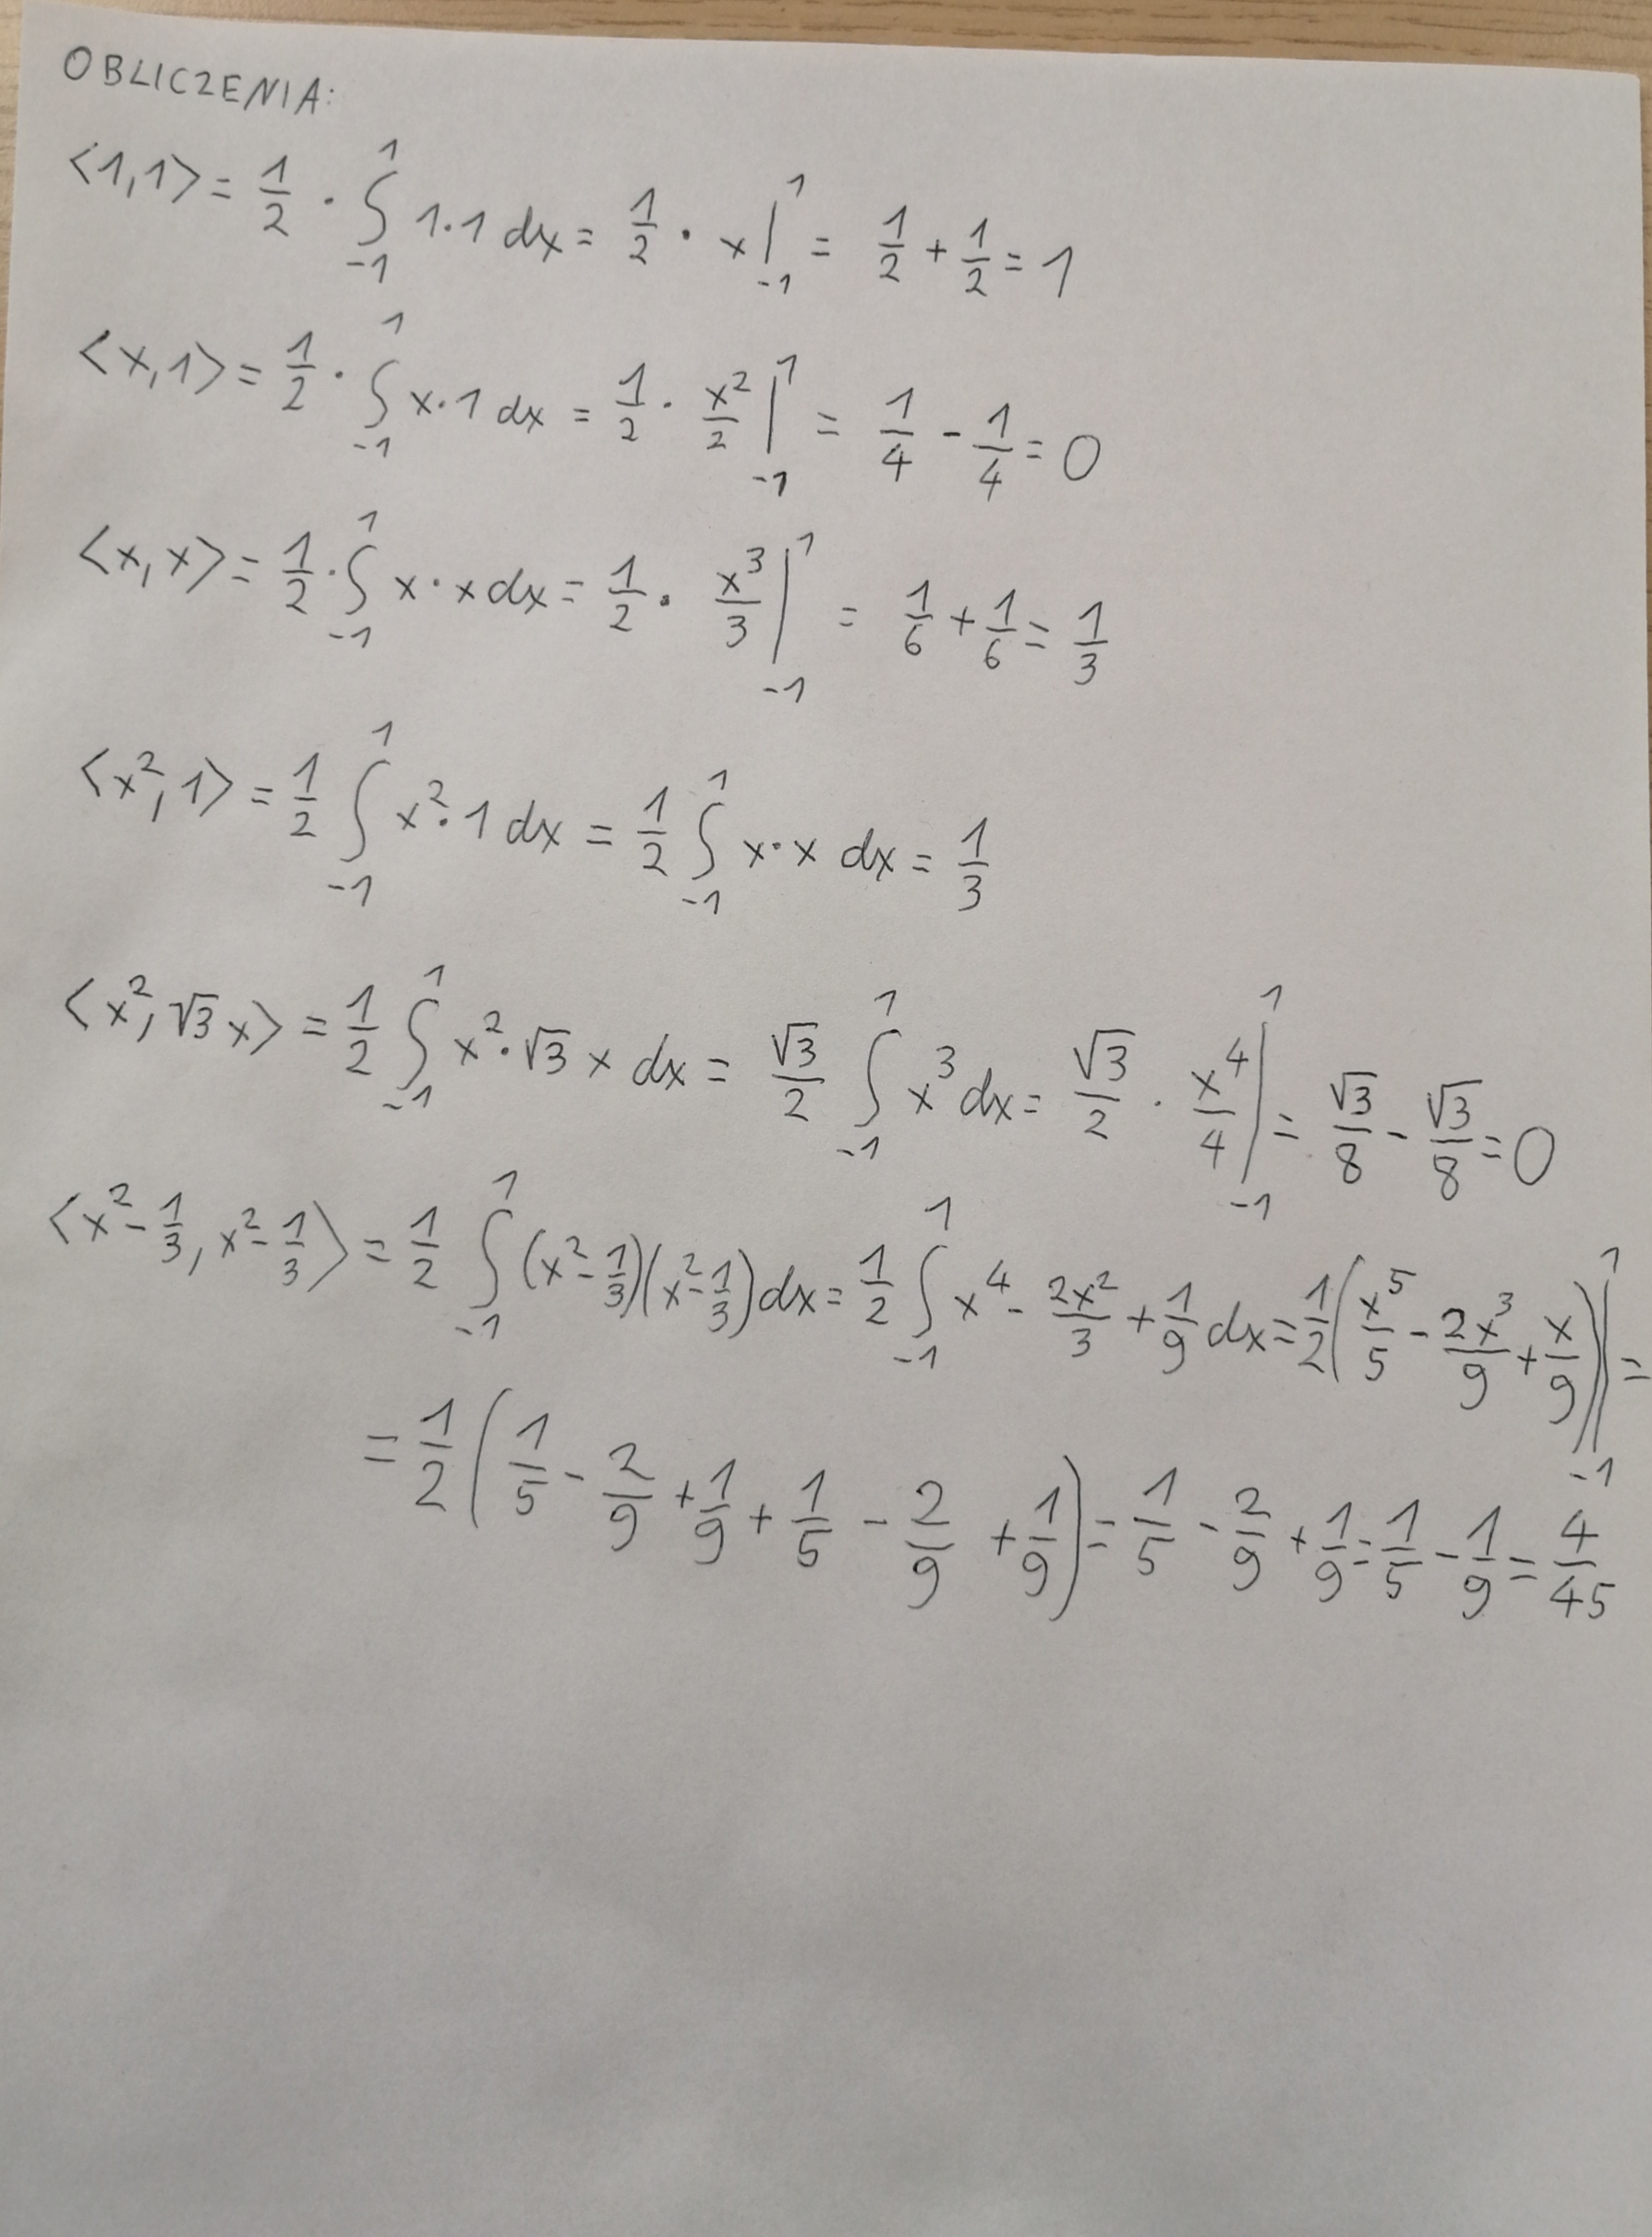 OBLICZENIA:
<1,1> = 1/2 · ∫_{-1}^{1} 1·1 dx = 1/2 · x|_{-1}^{1} = 1/2 + 1/2 = 1
<x,1> = 1/2 · ∫_{-1}^{1} x·1 dx = 1/2 · x²/2 |_{-1}^{1} = 1/4 - 1/4 = 0
<x,x> = 1/2 · ∫_{-1}^{1} x·x dx = 1/2 · x³/3 |_{-1}^{1} = 1/6 + 1/6 = 1/3
<x²,1> = 1/2 ∫_{-1}^{1} x²·1 dx = 1/2 ∫_{-1}^{1} x·x dx = 1/3
<x²,√3 x> = 1/2 ∫_{-1}^{1} x²·√3 x dx = √3/2 ∫_{-1}^{1} x³ dx = √3/2 · x⁴/4 |_{-1}^{1} = √3/8 - √3/8 = 0
<x² - 1/3, x² - 1/3> = 1/2 ∫_{-1}^{1} (x² - 1/3)(x² - 1/3) dx = 1/2 ∫_{-1}^{1} x⁴ - 2x²/3 + 1/9 dx = 1/2 (x⁵/5 - 2x³/9 + x/9)|_{-1}^{1} =
= 1/2 (1/5 - 2/9 + 1/9 + 1/5 - 2/9 + 1/9) = 1/5 - 2/9 + 1/9 = 1/5 - 1/9 = 4/45